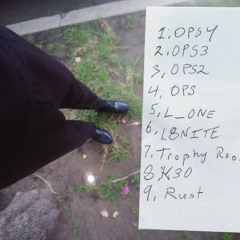 1. OPS4
2. OPS3
3, OPS2
4, OPS
5, L_ONE
6, L8NITE
7. Trophy Roo
8 K30
9, Rust